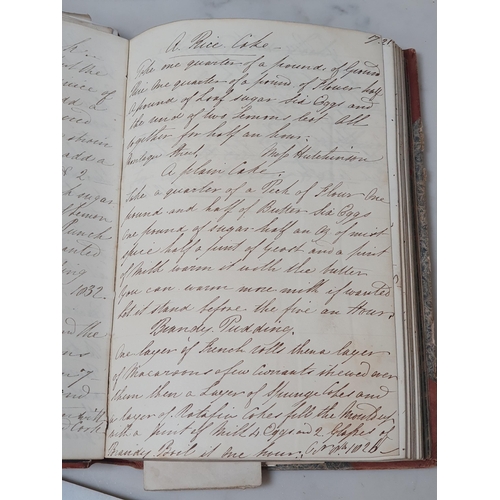 A Rice Cake
P. 21
Take one quarter of a pound of Ground
Rice One quarter of a pound of Flower half
a pound of Loaf sugar Six Eggs and
the rind of two Lemons beat all
together for half an hour.
Montague Street, Miss Hutchinson
A plain Cake.
Take a quarter of a Peck of Flour One
pound and half of Butter Six Eggs
One pound of sugar half an oz of mixt
spice half a pint of Yeast and a pint
of Milk warm it with the butter
You can warm more milk if wanted
let it stand before the fire an Hour.
Brandy Pudding.
One layer of French rolls then a layer
of Macaroons a few currants strewed over
them then a Layer of Spunge Cakes and
a layer of Ratafia Cakes fill the Mould up
with a pint of Milk 4 Eggs and 2 Glasses of
Brandy Boil it one hour. 1026
the
add a
2
sugar
Lemon
Punch
wanted
1032
and the